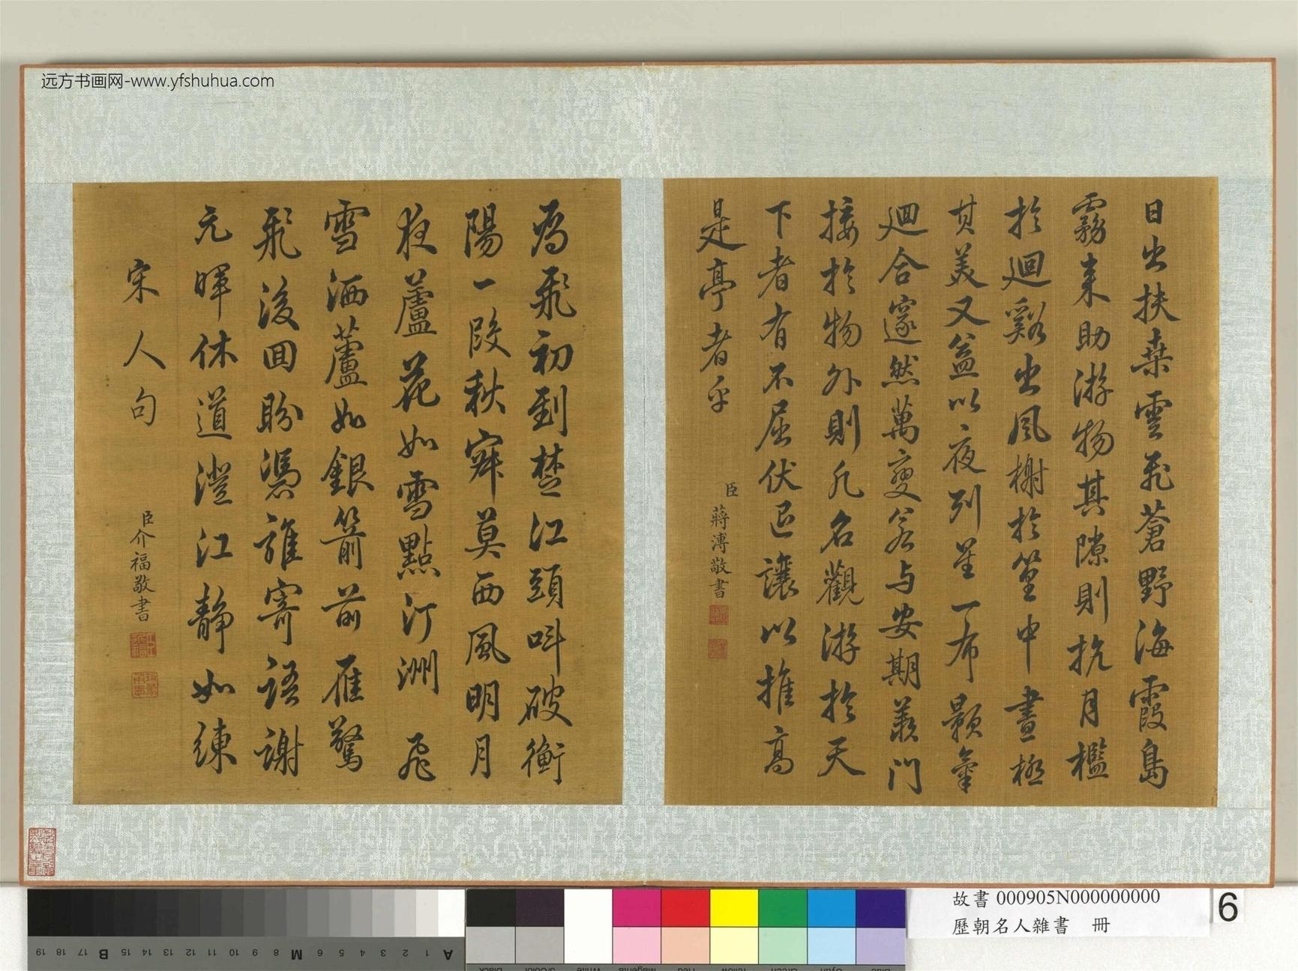 远方书画网-www.yfshuhua.com
日出扶桒雲飛蒼野海霞島
霧来助游物其隙則抗月檻
於迴谿出風榭於篁中晝極
其美又益以夜列星下布顥氣
迴合邃然萬變若与安期羡門
接於物外則凡名觀游於天
下者有不屈伏退讓以推高
是亭者乎
臣蔣溥敬書
雁飛初到楚江頭叫破衡
陽一段秋寐莫西風明月
夜蘆花如雪點汀洲 飛
雪洒蘆如銀箭前雁驚
飛後回盼憑誰寄語謝
元暉休道澄江靜如練
宋人句
臣介福敬書
故書 000905N000000000
歷朝名人雜書 冊
6
19 18 17 B 15 14 13 12 11 10 9 8 M 6 5 4 3 2 1 A